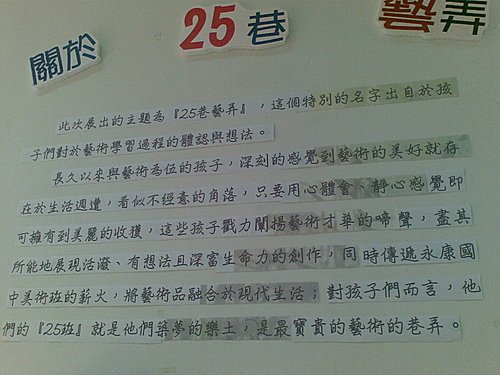 關於 25巷 藝弄
此次展出的主題為『25巷藝弄』，這個特別的名字出自於孩
子們對於藝術學習過程的體認與想法。
長久以來與藝術為伍的孩子，深刻的感覺到藝術的美好就存
在於生活週遭，看似不經意的角落，只要用心體會、靜心感覺即
可擁有到美麗的收穫，這些孩子戮力闡揚藝術才華的啼聲，盡其
所能地展現活潑、有想法且深富生命力的創作，同時傳遞永康國
中美術班的薪火，將藝術品融合於現代生活；對孩子們而言，他
們的『25班』就是他們築夢的樂土，是最寶貴的藝術的巷弄。